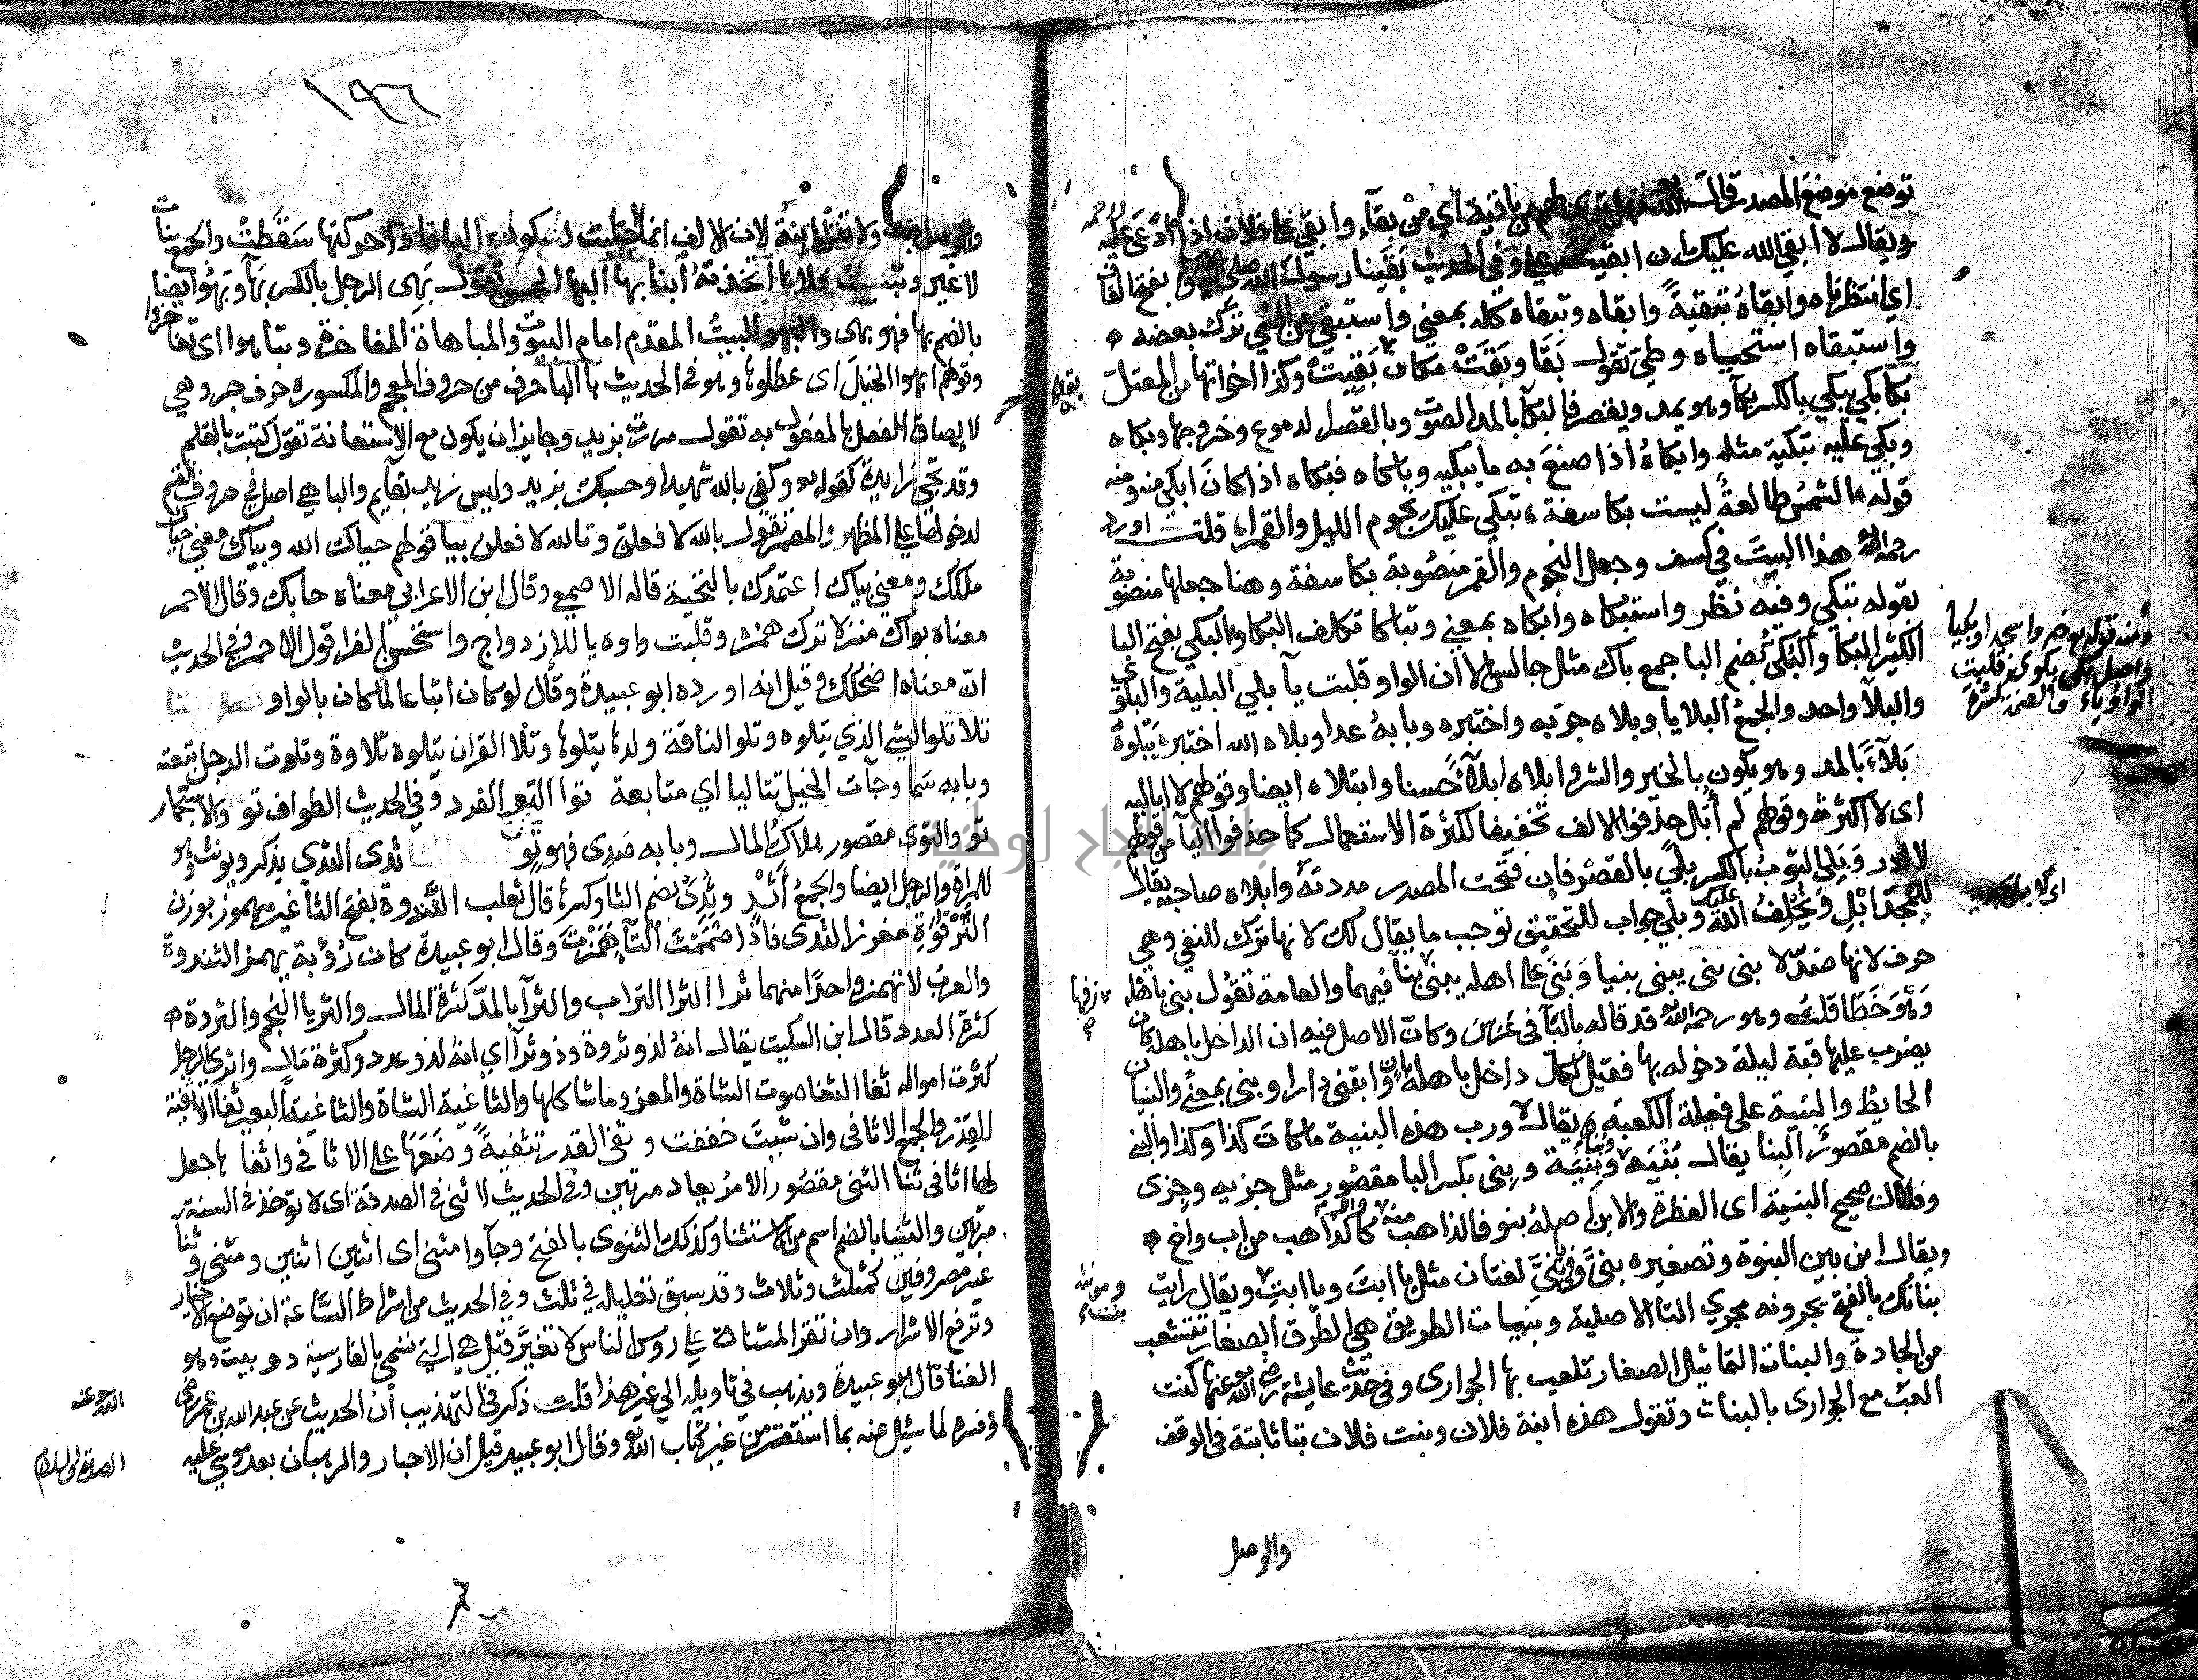 توضع موضع المصدر قال الله تعالى فهل ترى لهم من باقية اي من بقآء وابقي على فلان اذا ارعى عليه ورحمه
ويقال لا ابقي الله عليك ان ابقيت علي وفي الحديث بقينا رسول الله صلى الله عليه وسلم بفتح القاف
اي انتظرناه وابقاهُ تبقيةً وابقاه وتبقاه كله بمعني واستبقي من الشي ترك بعضه ه
واستبقاه استحياه وطيّ تقول بَقَا وبَقَتْ مكان بَقِيَتْ وكذا اخواتها من المعتلّ
بكا بكي يبكي بالكسر بكآ وهو يمد ويقصر فالبكآ بالمد الصوت وبالقصر الدموع وخروجها وبكاه
وبكي عليه تبكية مثله وابكاهُ اذا صنعَ به ما يبكيه وباكاه فبكاه اذا كانَ ابكي منه ومنه
قوله الشمسُ طالعةٌ ليست بكاسفة تبكي عليك نجوم الليل والقمرا قلت اورد
رحمه الله هذا البيتَ في كسف وجعل النجوم والقمر منصُوبة بكاسفة وهنا جعلها منصُوبة
بقوله تبكي وفيه نظر واستبكاه وابكاه بمعني وتباكا تكلف البكا والبكي بفتح البا
الكثير البكا والبُكي بُضم البا جمع باك مثل جالس الا ان الواو قلبت يآ بلي البلية والبلوي
والبلآ واحد والجمعُ البلايا وبلاه جرّبه واختبره وبابهُ عدا وبلاه الله اختبره يَبْلوهُ
بَلآءً بالمد وهو يكون بالخير والشر وابلاه ابلآءً حسنا وابتلاه ايضا وقولهم لا اباليه
اى لا اكترث وقولهم لم أُبَل حذفوا الالف تخفيفا لكثرة الاستعمال كما حذفوا اليآ من قولهم
لا ادر وَبَلِي الثوبُ بالكسر بِلًي بالقصر فان فتحت المصدر مددتهُ وابلاه صاحبه يقال
للمُجِدّ ابْلِ وَيُخْلِفُ اللهُ عليك وبلي جواب للتحقيق توجب ما يقال لك لانها ترك للنفي وهي
حرف لانها ضدّ لا بنى بنى يبنى بنيا وَبَنَي على اهله يبنى بنآ فيهما والعامة تقُول بنى باهله
وَهُوَ خَطَا قلتُ وهو رحمه الله قد قاله بالبآ في عَرَسَ وكانَ الاصل فيه ان الداخل باهله كان
يضرب عليها قبة ليلة دخوله بها فقيل لكل داخل باهله بانٍ وابتنى دارا وبنى بمعنًي والبنيان
الحايطُ والبَنِية على فعيلة الكعبَة يقال لا ورب هذه البنية ما كانَ كذا وكذا والبُني
بالضم مقصورُ البِنا يقال بُنْيَه وبُنًي وبِنْيَة وبِنى بكسر البا مقصُور مثل جزيه وجزى
وفلان صحيح البنيَة اى الفطرة والابن اصلهُ بنو فالذاهب منه واو كما ذهب من اب واخ ه
ويقال ابن بين البنوة وتصغيره بنيَّ وفي بُنَيَّ لغتان مثل يا ابتَ ويا ابتِ ويقال رايت
بناتَك بالفتح يجرونه مجري التا الاصلية وبنيات الطريق هي الطرق الصغار تتشعب
من الجادة والبنات التماثيل الصغار تلعب بها الجوارى وفي حديث عايشة رضي الله عنها كنت
العب مع الجوارى بالبنات وتقول هذه ابنة فلان وبنت فلان بتا ثابتة في الوقف
والوصل
ومنه قوله تعالى خروا سجدا وبكيا
واصل بكي بكوي فقلبت
الواو ياء والضمة كسرة
ومونثه
بنت
١٩٦
والوصل ولا تقل ابنة لان الالف انما اجتلبت لسكون البا فاذا حركتها سَقَطَتْ والجمع بنات
لا غير وتبنيت فلانا اتخذتهُ ابنا بها البها الحسن تقول بَهِى الرجل بالكسر بَهآ وبَهُوَ ايضا
بالضم بها فهو بهى والبهو البيتُ المقدم امام البيوت والمباهاة المفاخرة وتباهوا اى تفاخروا
وقولهم ابهوا الخيل اى عطلوها وهو في الحديث با البا حرف من حروف المعجم والمكسوره حرف جر وهي
لالصاق الفعل بالمفعول به تقول مررت بزيد وجايز ان يكون مع الاستعانة تقول كتبت بالقلم
وقد تجي زايدة كقوله تعالى وكفى بالله شهيدا وحسبك بزيد وليس زيد بقايم والبا هي اصل في حروف القسم
لدخولها على المظهر والمضمر تقول بالله لا فعلن وتالله لا فعلن بيا قولهم حياك الله وبياك معني حياك
ملكك ومعني بياك اعتمدك بالتحية قاله الاصمعي وقال ابن الاعرابي معناه جا بك وقال الاحمر
معناه بواك منزلا ترك همزه وقلبت واوه يا للازدواج واستحسن الفرا قول الاحمر وفي الحديث
انّ معناه اضحكك وقيل انه اورده ابو عبيدة وقال لو كان اتباعا لما كان بالواو
تلا تلو الشي الذي يتلوه وتلو الناقة ولدها يتلوها وتلا القران يتلوه تلاوة وتلوت الرجل تبعته
وبابه سما وجآت الخيل تتاليا اي متابعة توا التو الفرد وفي الحديث الطواف تو والاستجمار
تو والتوى مقصور هلاك المال وبابه صَدِى فهو تَوٍ ثدى الثدي يذكر ويونث وهو
للمراة والرجل ايضا والجمعُ أَثْدٍ وثُدِىّ بضم الثا وكسرها قال ثعلب الثَّندوة بفتح الثا غير مهموز بوزن
التَّرْقُوَةِ مغرز الثدى فاذا ضَمَمْتَ الثآ هَمَزْتَ وقال ابو عبيدة كان رُؤبة يهمز الثندوة
والعربُ لا تهمز واحدًا منهما ثرا الثرا التراب والثرآ بالمدّ كثرة المال والثريا النجم والثروة ه
كثرة العدد قال ابن السكيت يقال انهُ لذو ثروة وذو ثرآ اي انهُ لذو عدد وكثرة مَال واثرى الرجل
كثرت امواله ثغا الثغا صوت الشاة والمعز وما شاكلها والثاغية الشاة والثاغية البعير ثفا الاثفية
للقِدْرِ والجمع الاثافى وان شيتَ خففت وثفى القدر تثفيةً وضعَهَا على الاثافي واثفاها جعل
لها اثافي ثنا الثنى مقصُور الامر يعاد مرتين وفي الحديث لا ثنى في الصدقة اى لا توخذ في السنة
مرتين والثنيا بالضم اسم من الاستثنا وكذلك الثنوى بالفتح وجآوا مثنى اى اثنين اثنين ومثنى وثنا
غير مصروفين كمثلث وثلاث وقد سبق تعليله في ثلث وفي الحديث من اشراط السَّاعة ان توضع الاخيار
وترفع الاشرار وان تقرا المثناة على روس الناس لا تغيّر قيل هي التي تسمى بالفارسية دو بيت وهو
الغنا قال ابو عبيدة وذهب في تاويله الي غير هذا قلت ذكر في التهذيب ان الحديث عن عبد الله بن عمر رضي
الله عنه
وفسره لما سئيل عنه بما استقر من غير كتاب الله تعالى وقال ابو عبيد قيل ان الاحبار والرهبان بعد موسي عليه
الصلاة والسلام